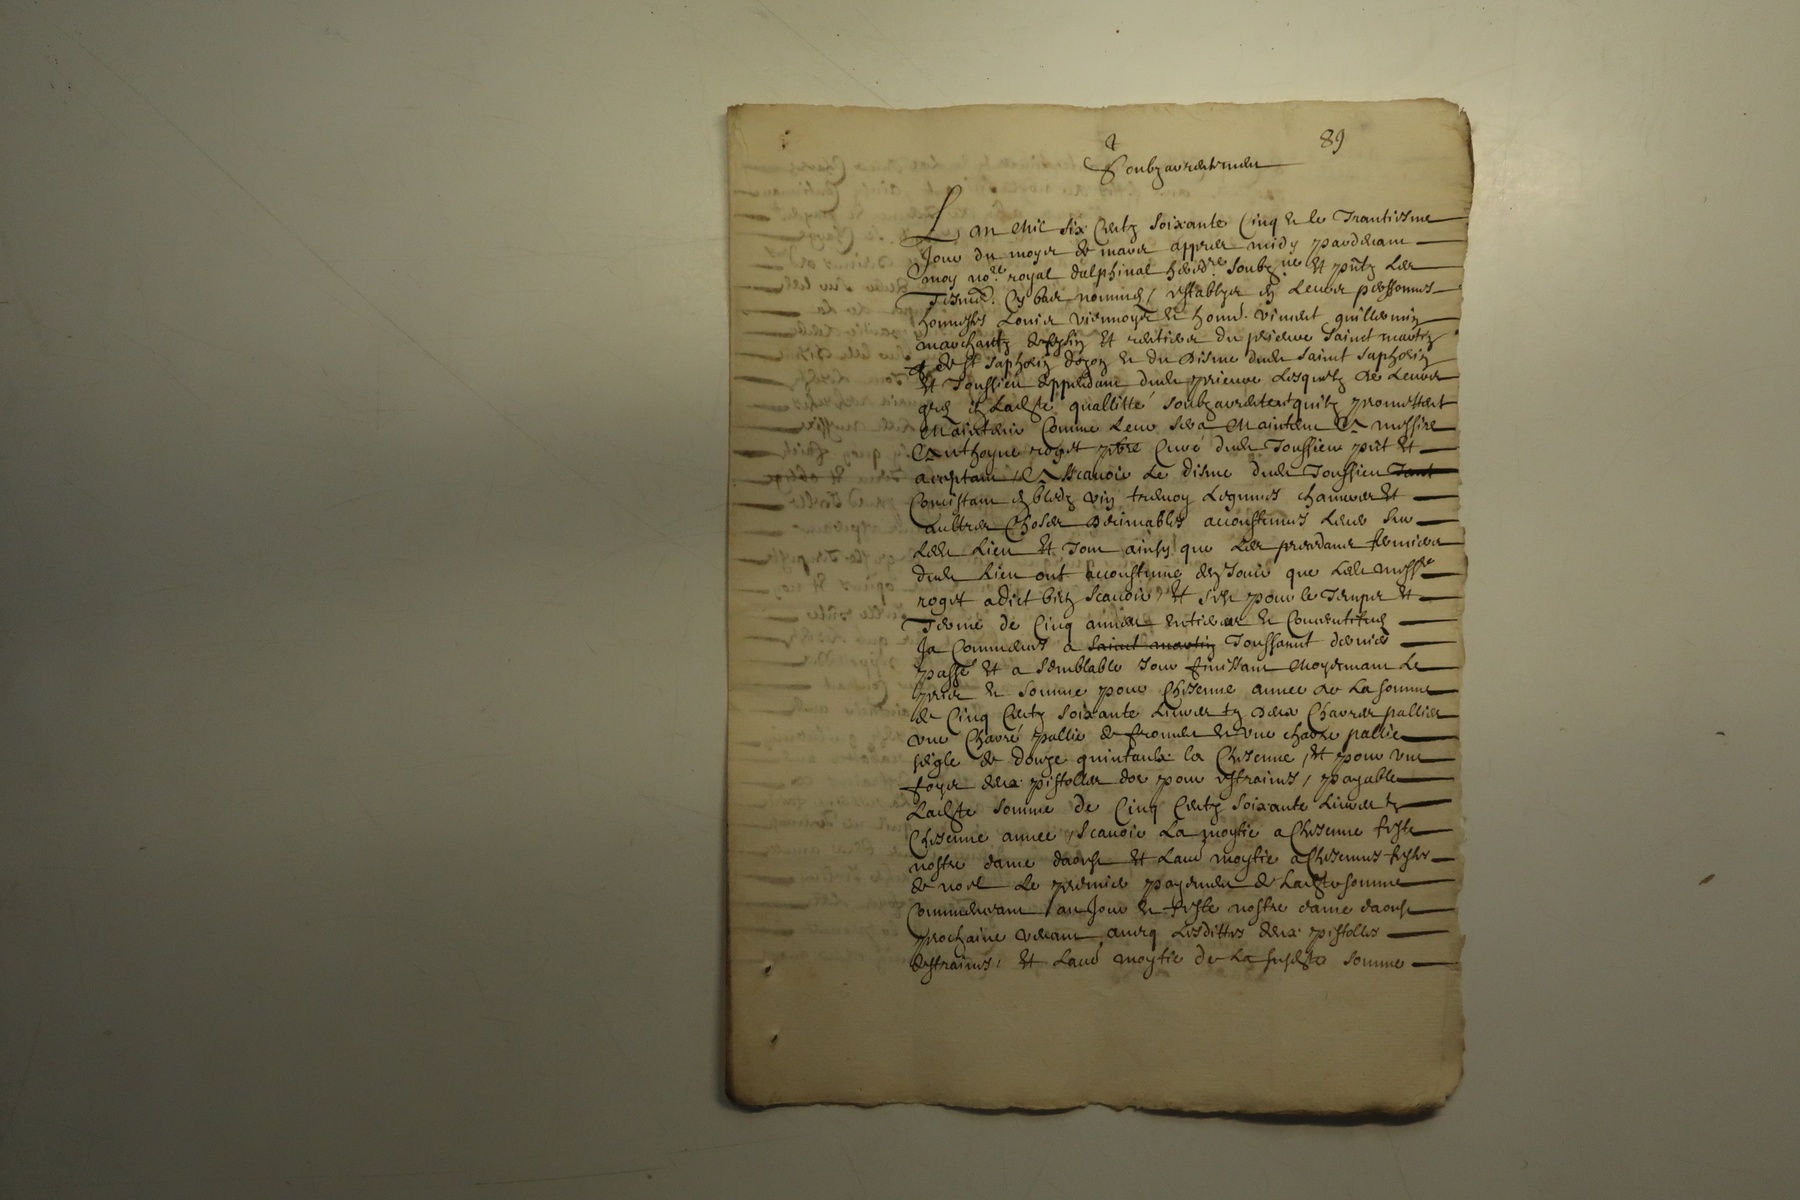 89
Soubzarrentement
L an mil six centz soixante cinq et le trantiesme
Jour du moys de mars appres midy pardevant
moy no.re royal dalphinal hered.re soubz.ne et pntz les
tesmo. cy bas nommes, establys en leurs personnes
honnestes Louis viennoys et honn. vincent guillermin
marchantz et rentiers du prieure saint martin
de st saphorin dozon et du disme dud saint saphorin
et Toussieu deppendant dud prieure lesquelz de leurs
gres en ladte quallitté soubzarrentent quitz promettent
maintenir comme leur sera maintenu A messire
Anthoyne roget ptre Curé dud Toussieu pnt et
acceptant, A scavoir Le disme dud Toussieu
Concistant en bledz vin legumes chanvres et
aultres choses deximables accoustumes leve sur
led lieu et tout ainsy que les precedans fermiers
dud lieu ont accoustume den jouir que led messe
roget a dict bien scavoir, et ses pour le temps et
terme de cinq annees entieres et consecutives
Ja commences a saint martin Toussainct dernier
passé et a semblable jour finissant moyenant le
pris et somme pour chesenne annee de la somme
de cinq centz soixante livres tz deux chavres pallies
une chavre pallie de froment et une chavre pallie
seigle de douze quintaulx la chesenne, et pour une
foys deux pistolles dor pour estraines, payable
ladte somme de cinq centz soixante livres tz
chesenne annee, scavoir la moytie a chesenne feste
nostre dame daoust et laud moytie a chesennes festes
de noel Le premier payement de ladte somme
commencant au jour et feste nostre dame daoust
prochaine venant, avecq lesdittes deux pistolles
destraines, et laud moytie de la susdte somme